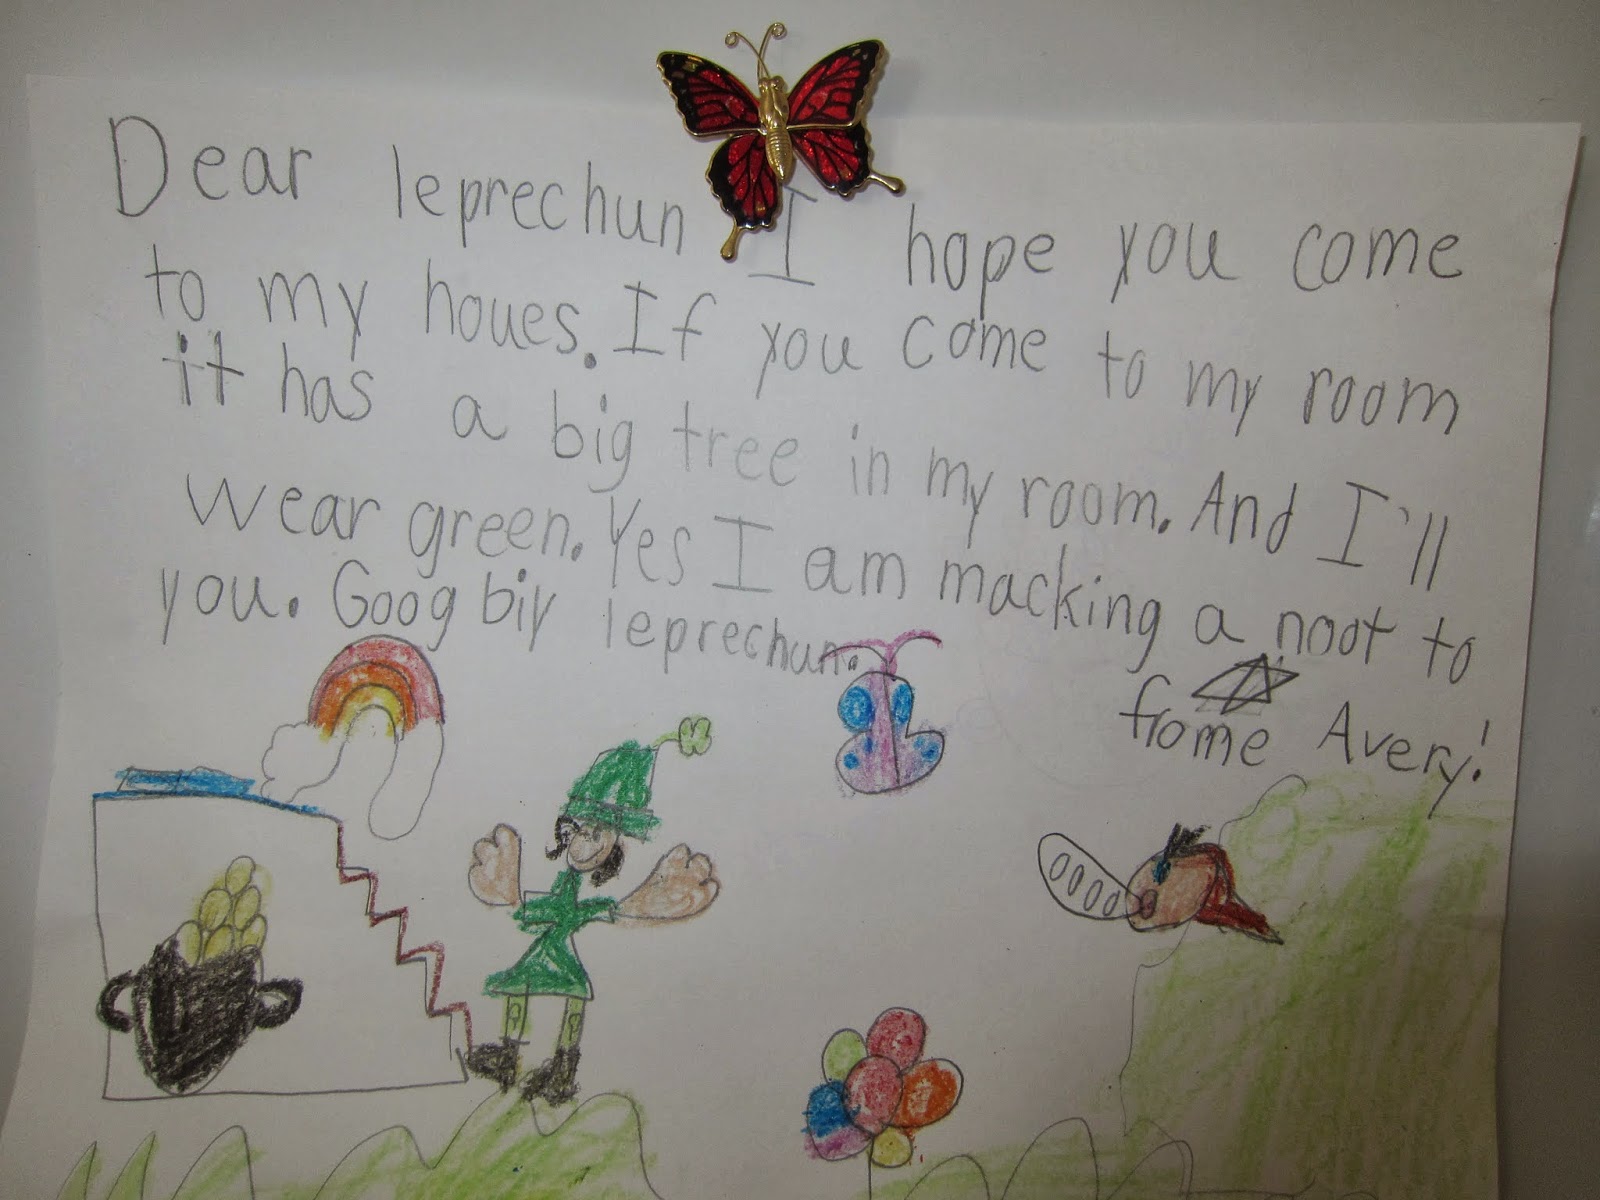 Dear leprechun I hope you come
to my houes. If you come to my room
it has a big tree in my room. And I'll
wear green. Yes I am macking a noot to
you. Goog biy leprechun.
frome Avery!